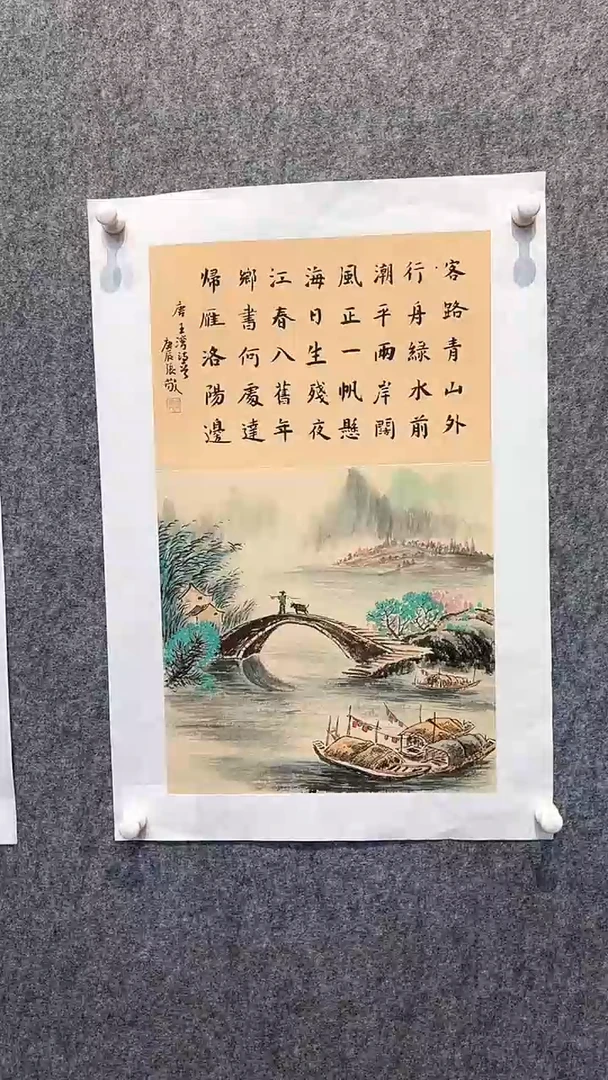 客路青山外
行舟綠水前
潮平兩岸闊
風正一帆懸
海日生殘夜
江春入舊年
鄉書何處達
歸雁洛陽邊
唐王灣詩意
庚辰張敬